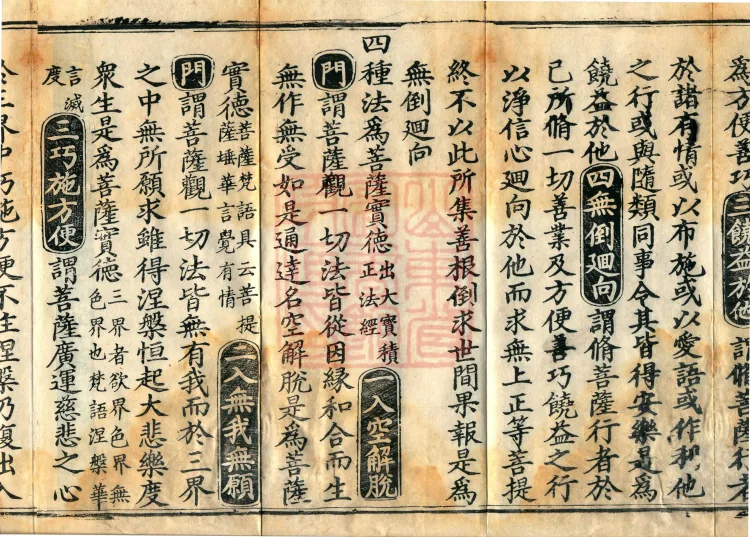 爲方便善巧三饒益於他謂脩菩薩行者
於諸有情或以布施或以愛語或作利他
之行或與隨類同事令其皆得安樂是爲
饒益於他四無倒迴向謂脩菩薩行者於
己所脩一切善業及方便善巧饒益之行
以淨信心迴向於他而求無上正等菩提
終不以此所集善根倒求世間果報是爲
無倒迴向
四種法爲菩薩實德出大寶積正法經一入空解脫
門謂菩薩觀一切法皆從因緣和合而生
無作無受如是通達名空解脫是爲菩薩
實德菩薩梵語具云菩提薩埵華言覺有情二入無我無願
門謂菩薩觀一切法皆無有我而於三界
之中無所願求雖得涅槃恒起大悲樂度
衆生是爲菩薩實德三界者欲界色界無色界也梵語涅槃華
言滅度三巧施方便謂菩薩廣運慈悲之心
於三界中巧施方便不住涅槃乃復出入